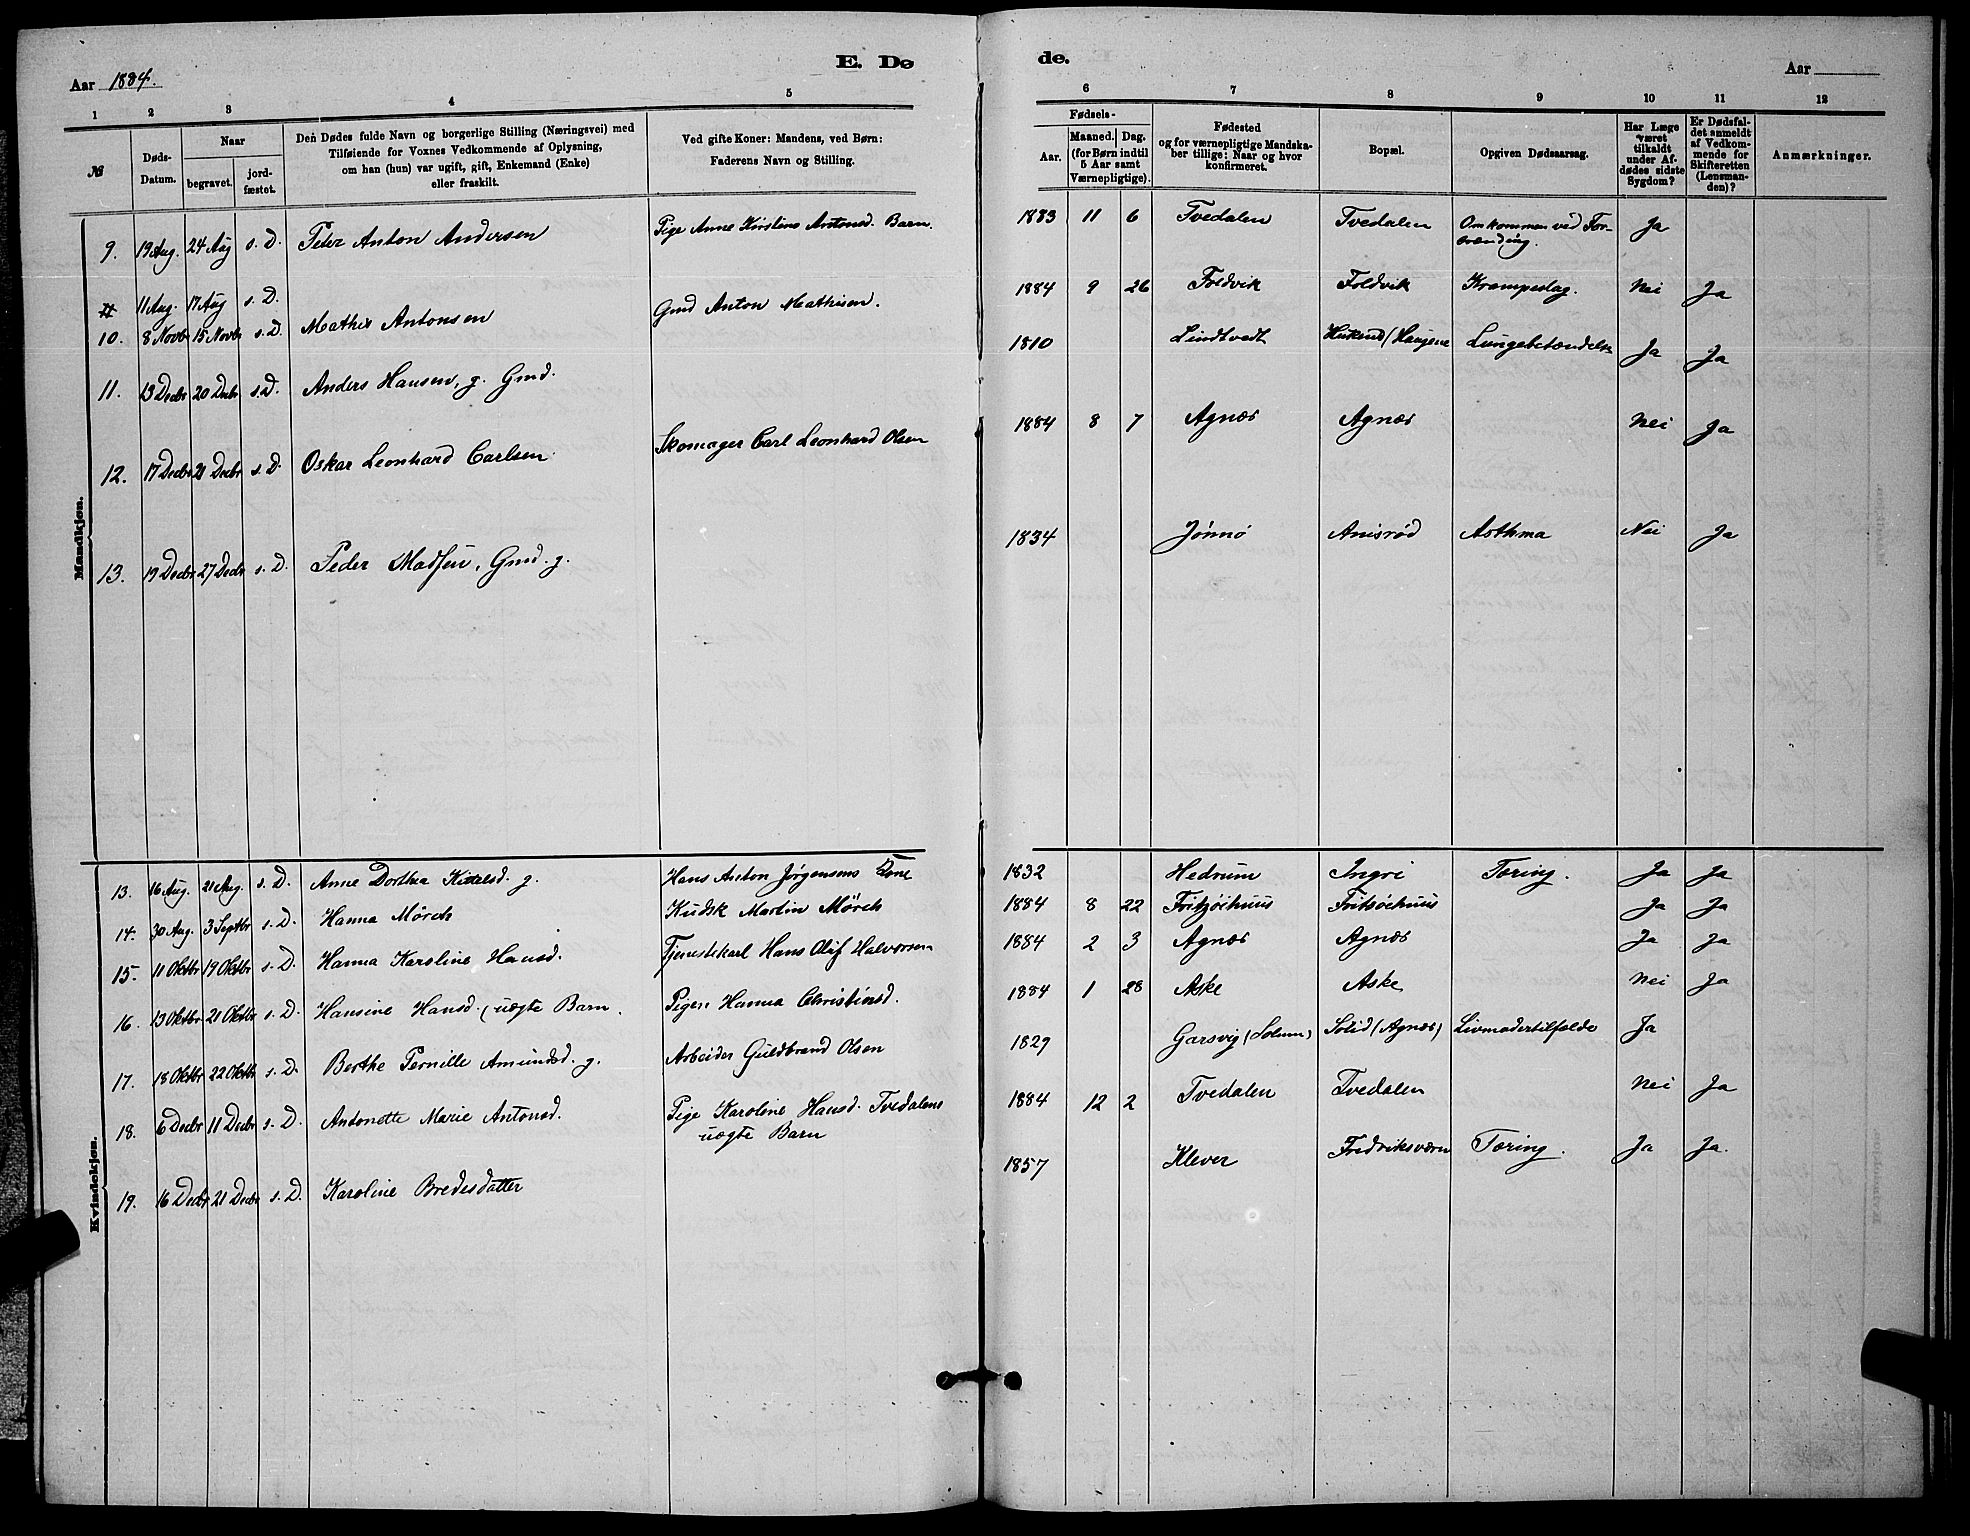 Aar 1884.
E. Dø
1 2 3 4 5
№
Døds-
Datum.
Naar
begravet.
jord-
fæstet.
Den Dødes fulde Navn og borgerlige Stilling (Næringsvei) med
Tilføiende for Voxnes Vedkommende af Oplysning,
om han (hun) var ugift, gift, Enkemand (Enke)
eller fraskilt.
Ved gifte Koner: Mandens, ved Børn:
Faderens Navn og Stilling.
Mandkjøn.
9. 19 Aug. 24 Aug s. D. Peter Anton Andersen Pige Anne Kirstine Antonsd. Barn.
11 Aug. 17 Aug s. D.
10. 8 Novbr 15 Novbr s. D. Mathis Antonsen Gmd Anton Mathisen.
11. 13 Decbr 20 Decbr s. D. Anders Hansen, g. Gmd.
12. 17 Decbr 21 Decbr s. D. Oskar Leonhard Carlsen. Skomager Carl Leonhard Olsen
13. 19 Decbr 27 Decbr s. D. Peder Madsen, Gmd. g.
Kvindekjøn.
13. 16 Aug. 21 Aug. s. D. Anne Dorthea Kittelsd. g. Hans Anton Jørgensens Kone
14. 30 Aug. 3 Septbr s. D. Hanna Mörch Kudsk Martin Mörch
15. 11 Oktbr 19 Oktbr s. D. Hanna Karoline Hansd. Tjenestekarl Hans Olaf Halvorsen
16. 13 Oktbr 21 Oktbr s. D. Hansine Hansd. (uægte Barn. Pigen Hanna Christinsd.
17. 18 Oktbr 22 Oktbr s. D. Berthe Pernille Amundsd. g. Arbeider Guldbrand Olsen
18. 6 Decbr 11 Decbr s. D. Antonette Marie Antonsd. Pige Karoline Hansd. Tvedalens
uægte Barn
19. 16 Decbr 21 Decbr s. D. Karoline Bredesdatter
de.
Aar
6 7 8 9 10 11 12
Fødsels-
Aar.
Maaned. Dag.
(for Børn indtil
5 Aar samt
Værnepligtige).
Fødested
og for værnepligtige Mandska-
ber tillige: Naar og hvor
konfirmeret.
Bopæl.
Opgiven Dødsaarsag.
Har Læge
været
tilkaldt
under Af-
dødes sidste
Sygdom?
Er Dødsfal-
det anmeldt
af Vedkom-
mende for
Skifteretten
(Lensman-
den)?
Anmærkninger.
1883 11 6 Tvedalen Tvedalen Omkommen ved For-
brænding. Ja
1884 9 26 Foldvik Foldvik Krampeslag. Nei Ja
1810 Lindtvedt (Haugene Lungebetændelse Ja Ja
1884 8 7 Agnæs Agnæs Nei Ja
1834 Jønnø Anisrød Asthma Nei Ja
1832 Hedrum Ingri Tæring. Ja Ja
1884 8 22 Fritzöehuus Fritsöehuus Ja Ja
1884 2 3 Agnæs Agnæs Ja Ja
1884 1 28 Aske Aske Nei Ja
1829 Garsvig (Solum) Solid (Agnæs) Livmodertilfælde Ja
1884 12 2 Tvedalen Tvedalen Nei Ja
1857 Klever Fredriksværn Tæring. Ja Ja.